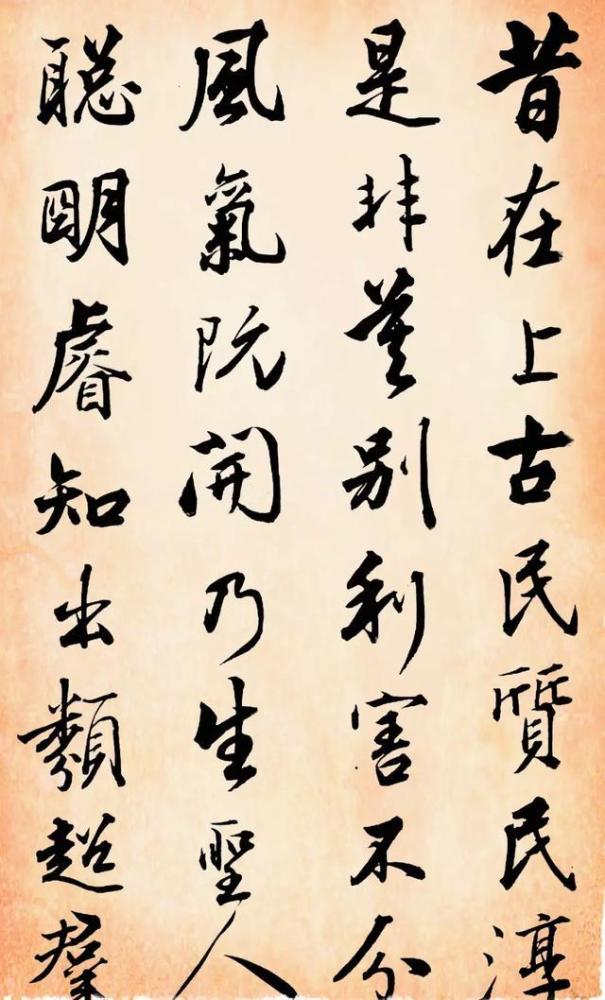 昔在上古民質民淳
是非莫別利害不分
風氣既開乃生聖人
聡明睿知出類超群